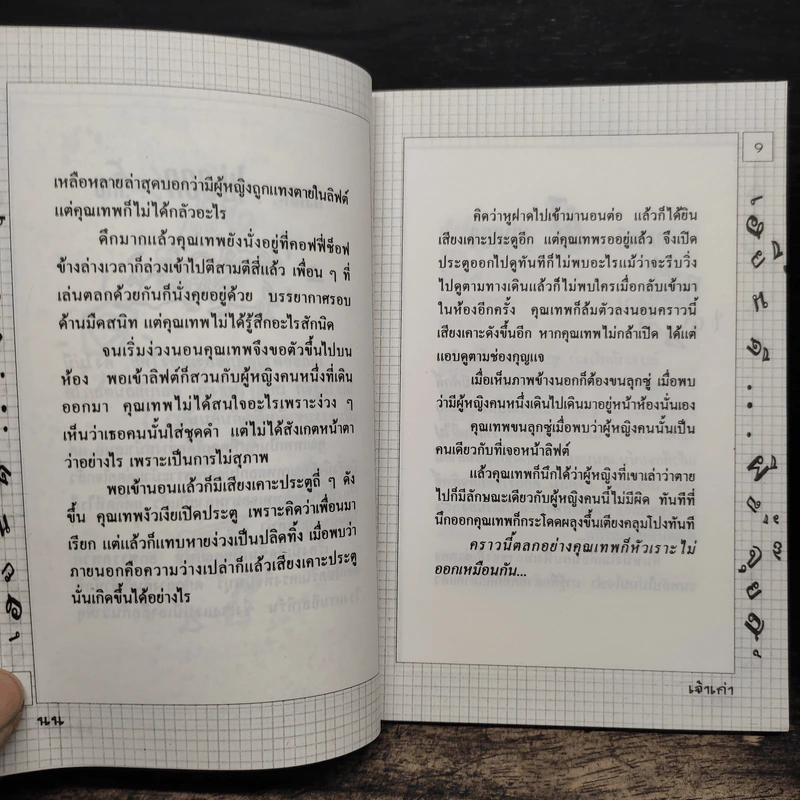 เหลือหลายล่าสุดบอกว่ามีผู้หญิงถูกแทงตายในลิฟต์
แต่คุณเทพก็ไม่ได้กลัวอะไร
ดึกมากแล้วคุณเทพยังนั่งอยู่ที่คอฟฟี่ช็อฟ
ข้างล่างเวลาก็ล่วงเข้าไปตีสามตีสี่แล้ว เพื่อน ๆ ที่
เล่นตลกด้วยกันก็นั่งคุยอยู่ด้วย บรรยากาศรอบ
ด้านมืดสนิท แต่คุณเทพไม่ได้รู้สึกอะไรสักนิด
จนเริ่มง่วงนอนคุณเทพจึงขอตัวขึ้นไปบน
ห้อง พอเข้าลิฟต์ก็สวนกับผู้หญิงคนหนึ่งที่เดิน
ออกมา คุณเทพไม่ได้สนใจอะไรเพราะง่วง ๆ
เห็นว่าเธอคนนั้นใส่ชุดดำ แต่ไม่ได้สังเกตหน้าตา
ว่าอย่างไร เพราะเป็นการไม่สุภาพ
พอเข้านอนแล้วก็มีเสียงเคาะประตูถี่ ๆ ดัง
ขึ้น คุณเทพงัวเงียเปิดประตู เพราะคิดว่าเพื่อนมา
เรียก แต่แล้วก็แทบหายง่วงเป็นปลิดทิ้ง เมื่อพบว่า
ภายนอกคือความว่างเปล่าก็แล้วเสียงเคาะประตู
นั่นเกิดขึ้นได้อย่างไร
นน
9
คิดว่าหูฝาดไปเข้ามานอนต่อ แล้วก็ได้ยิน
เสียงเคาะประตูอีก แต่คุณเทพรออยู่แล้ว จึงเปิด
ประตูออกไปดูทันทีก็ไม่พบอะไรแม้ว่าจะรีบวิ่ง
ไปดูตามทางเดินแล้วก็ไม่พบใครเมื่อกลับเข้ามา
ในห้องอีกครั้ง คุณเทพก็ล้มตัวลงนอนคราวนี้
เสียงเคาะดังขึ้นอีก หากคุณเทพไม่กล้าเปิด ได้แต่
แอบดูตามช่องกุญแจ
เมื่อเห็นภาพข้างนอกก็ต้องขนลุกซู่ เมื่อพบ
ว่ามีผู้หญิงคนหนึ่งเดินไปเดินมาอยู่หน้าห้องนั่นเอง
คุณเทพขนลุกซู่เมื่อพบว่าผู้หญิงคนนั้นเป็น
คนเดียวกับที่เจอหน้าลิฟต์
แล้วคุณเทพก็นึกได้ว่าผู้หญิงที่เขาเล่าว่าตาย
ไปก็มีลักษณะเดียวกับผู้หญิงคนนี้ไม่มีผิด ทันทีที่
นึกออกคุณเทพก็กระโดดผลุงขึ้นเตียงคลุมโปงทันที
คราวนี้ตลกอย่างคุณเทพก็หัวเราะไม่
ออกเหมือนกัน...
เจ้าเก่า